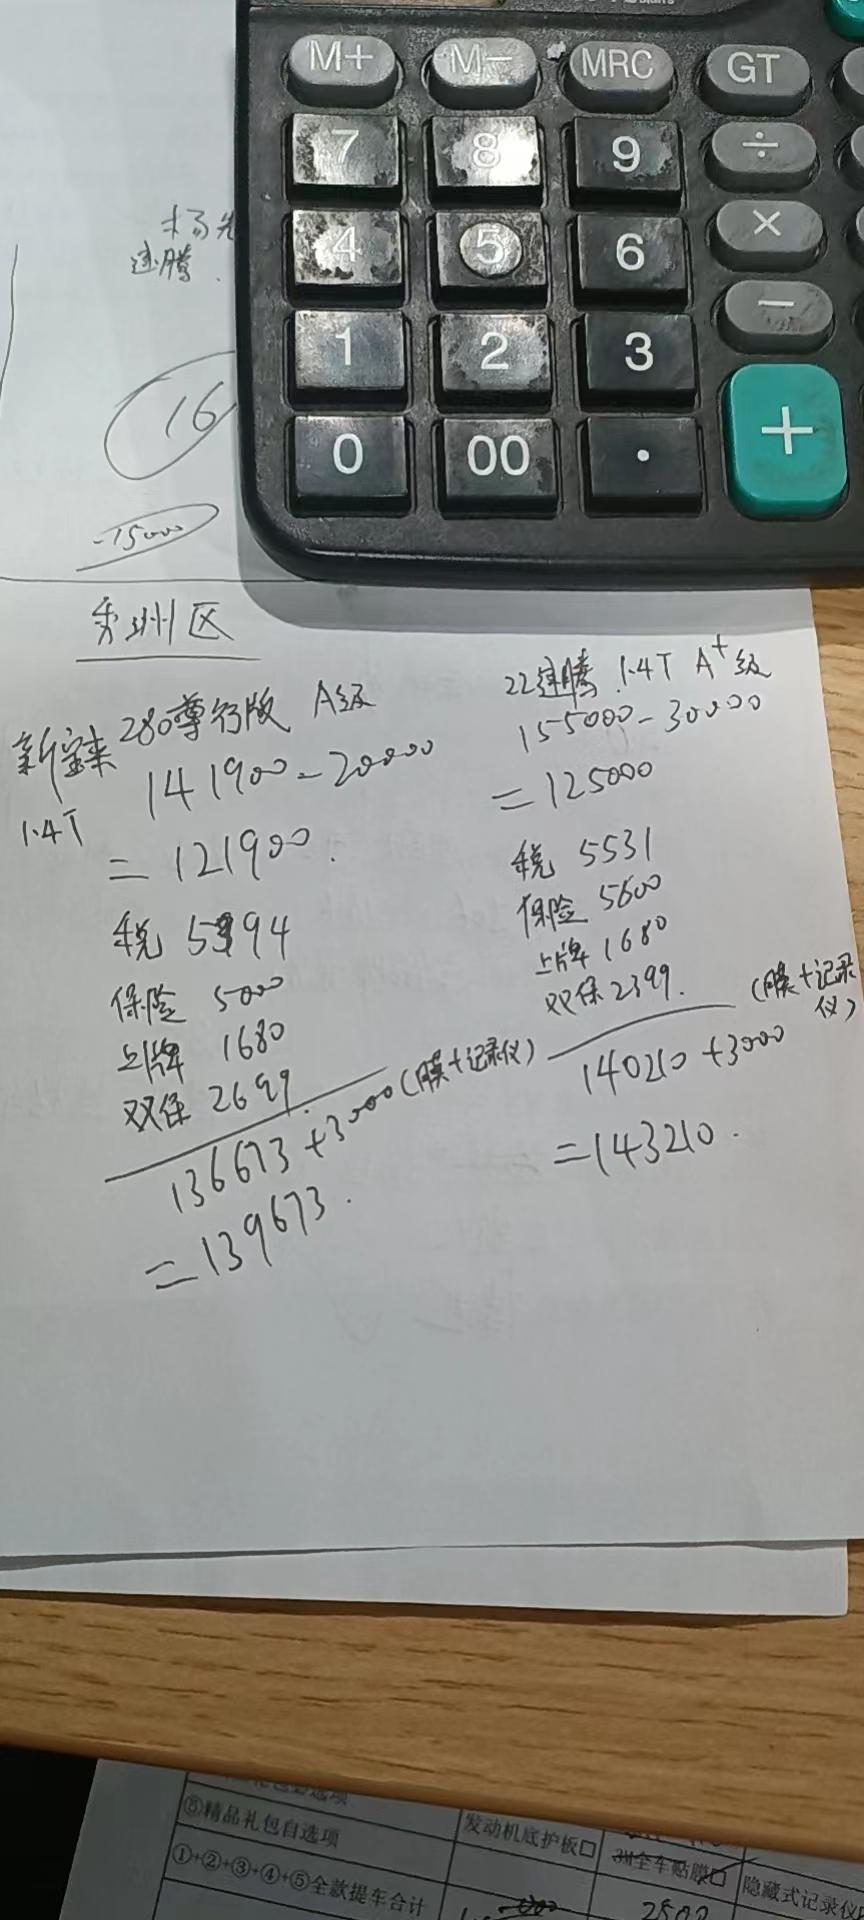 M+ M- MRC GT
7 8 9 ÷
4 5 6 ×
1 2 3 −
0 00 · +
杨先
速腾
16
-15000
秀洲区
新宝来 280尊行版 A级
1.4T 141900-20000
=121900.
税 5394
保险 5000
上牌 1680
双保 2699
136673+3000(膜+记录仪)
=139673.
22速腾 1.4T A+级
155000-30000
=125000
税 5531
保险 5600
上牌 1680
双保 2399.
140210+3000
(膜+记录仪)
=143210.
⑤精品礼包自选项
发动机底护板□
全车贴膜□
隐藏式记录仪
①+②+③+④+⑤全款提车合计